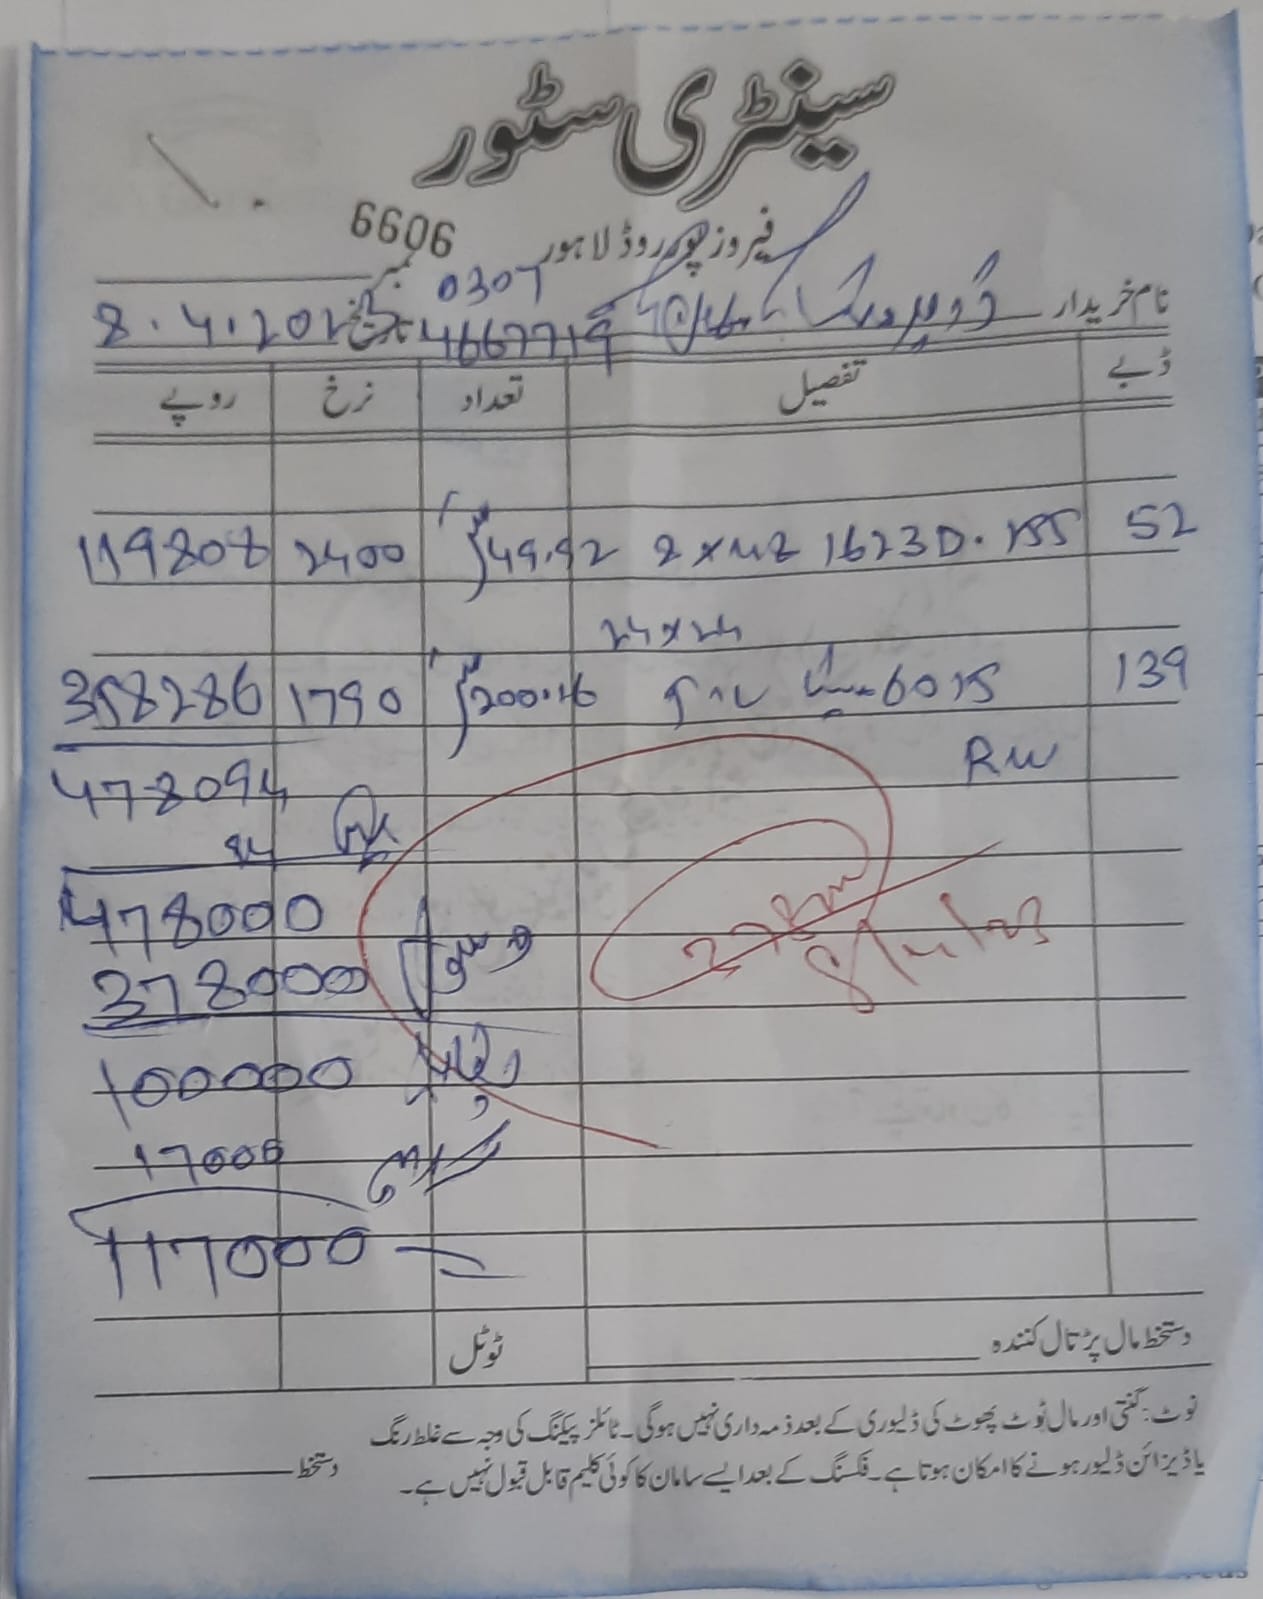 سینٹری سٹور
فیروز پور روڈ لاہور
6606
نمبر
0307
نام خریدار
4667719
تاریخ 8.4.2023
ڈبے تفصیل تعداد نرخ روپے
52 1623D.155 49.92 2400 119808
24x24
139 6015 200.16 1790 358286
RW
478094
94
478000
378000 وصول
278000
8/4/23
100000 بقایا
17000 کرایہ
117000
ٹوٹل
دستخط مال پڑتال کنندہ
نوٹ: گنتی اور مال ٹوٹ پھوٹ کی ڈلیوری کے بعد ذمہ داری نہیں ہوگی۔ ٹائلز پیکنگ کی وجہ سے غلط رنگ
یا ڈیزائن ڈلیور ہونے کا امکان ہوتا ہے۔ فکسنگ کے بعد ایسے سامان کا کوئی کلیم قابل قبول نہیں ہے۔
دستخط